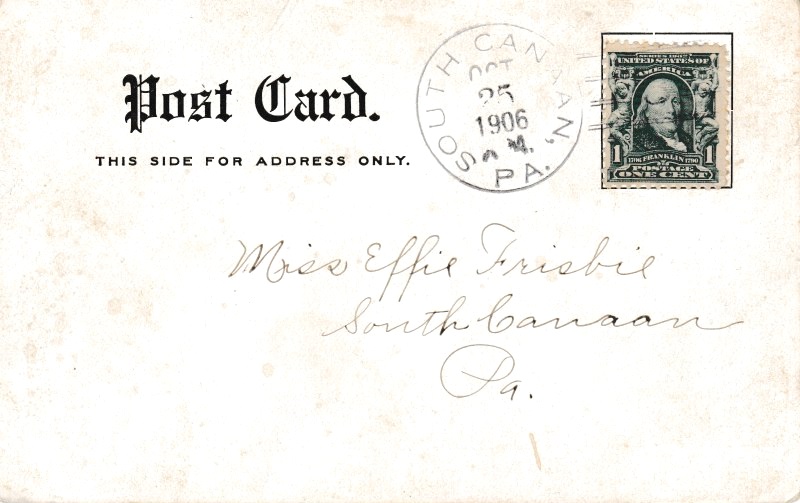 Post Card.
THIS SIDE FOR ADDRESS ONLY.
SOUTH CANAAN, PA.
OCT
25
1906
M.
SERIES 1902
UNITED STATES OF
AMERICA
1706 FRANKLIN 1790
1 1
POSTAGE
ONE CENT
Miss Effie Frisbie
South Canaan
Pa.